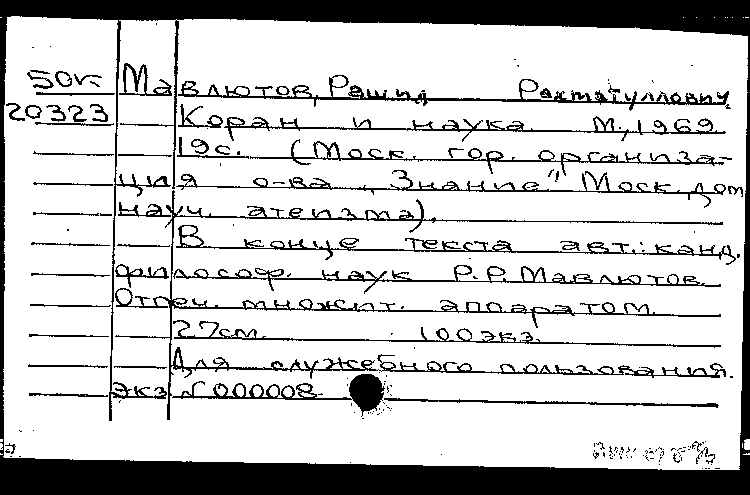 50к Мавлютов, Рашид Рахматуллович
20323 Коран и наука. М., 1969.
19с. (Моск. гор. организа-
ция о-ва „Знание" Моск. дом
науч. атеизма).
В конце текста авт.: канд.
философ. наук Р.Р. Мавлютов.
Отпеч. множит. аппаратом.
27см. 100экз.
Для служебного пользования.
экз. N 000008.